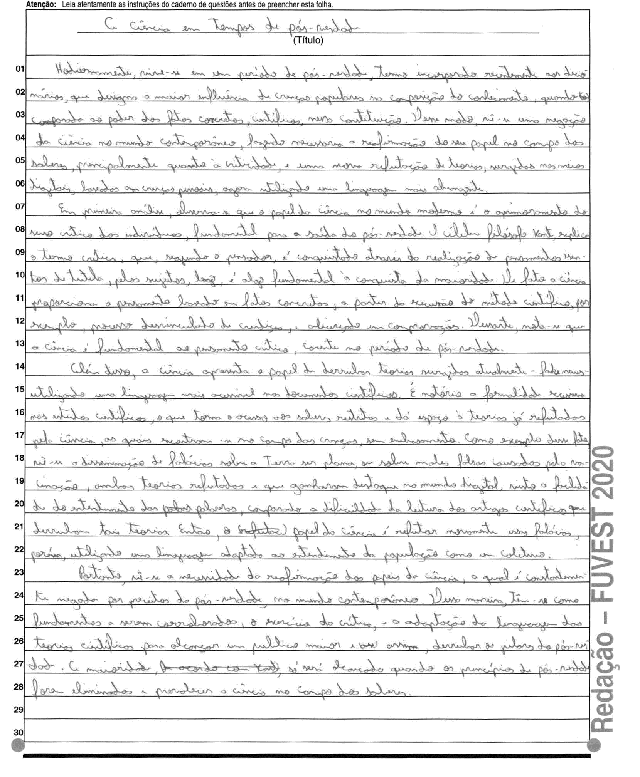 Atenção: Leia atentamente as instruções do caderno de questões antes de preencher esta folha.
A ciência em Tempos de pós-verdade
(Título)
01 Hodiernamente, vive-se em um período de pós-verdade, termo incorporado recentemente aos dicio
02 nários, que designa a maior influência de crenças populares na composição do conhecimento, quando
03 comparado ao poder dos fatos concretos, científicos, nessa constituição. Desse modo, vê-se uma negação
04 da ciência no mundo contemporâneo, fazendo necessária a reafirmação do seu papel no campo dos
05 saberes, principalmente quanto à criticidade, e uma nova refutação de teorias, surgidas nos meios
06 digitais, baseadas em crenças pessoais, agora utilizando uma linguagem mais abrangente.
07 Em primeira análise, observa-se que o papel da ciência no mundo moderno é o aprimoramento do
08 senso crítico dos indivíduos, fundamental para a saída da pós-verdade. O célebre filósofo Kant, explica
09 o termo que, segundo o pensador, é conquistado através da realização de pensamentos
10 de tutela, pelos sujeitos, é algo fundamental à conquista da maioridade. De fato a ciência
11 proporciona o pensamento baseado em fatos concretos, a partir da do método científico, por
12 exemplo, processo desvinculado de crenças, e em comprovações. Destarte, nota-se que
13 a ciência é fundamental ao pensamento crítico, carente no período de pós-verdade.
14 Além disso, a ciência apresenta o papel de derrubar teorias surgidas atualmente
15 utilizando uma linguagem mais acessível nos documentos científicos. É notória a formalidade
16 nos estudos científicos, o que torna o acesso aos saberes restrito e dá espaço à teorias já refutadas
17 pela ciência, as quais no campo das crenças, sem embasamento. Como exemplo desse fato
18 vê-se a disseminação de falácias sobre a Terra ser plana, ou sobre males falsos causados pela va-
19 cinação, ambas teorias refutadas e que ganharam destaque no mundo digital, visto a facilida
20 de de entendimento das palavras, comparando a dificuldade da leitura dos artigos científicos que
21 derrubam tais teorias. Então, o papel da ciência é refutar novamente essas falácias,
22 porém, utilizando uma linguagem adaptada ao entendimento da população como um coletivo.
23 Portanto, vê-se a necessidade da reafirmação dos papéis da ciência, a qual é constantemen-
24 te negada por preceitos da pós-verdade, no mundo contemporâneo. Dessa maneira, têm-se como
25 fundamentos a serem o exercício da crítica, e a adaptação da linguagem das
26 teorias científicas para alcançar um público maior e assim, derrubar os pilares da pós-ver
27 dade. A maioridade, só será alcançada quando os princípios de pós-verdade
28 forem eliminados e prevalecer a ciência no campo dos saberes.
29
30
Redação – FUVEST 2020